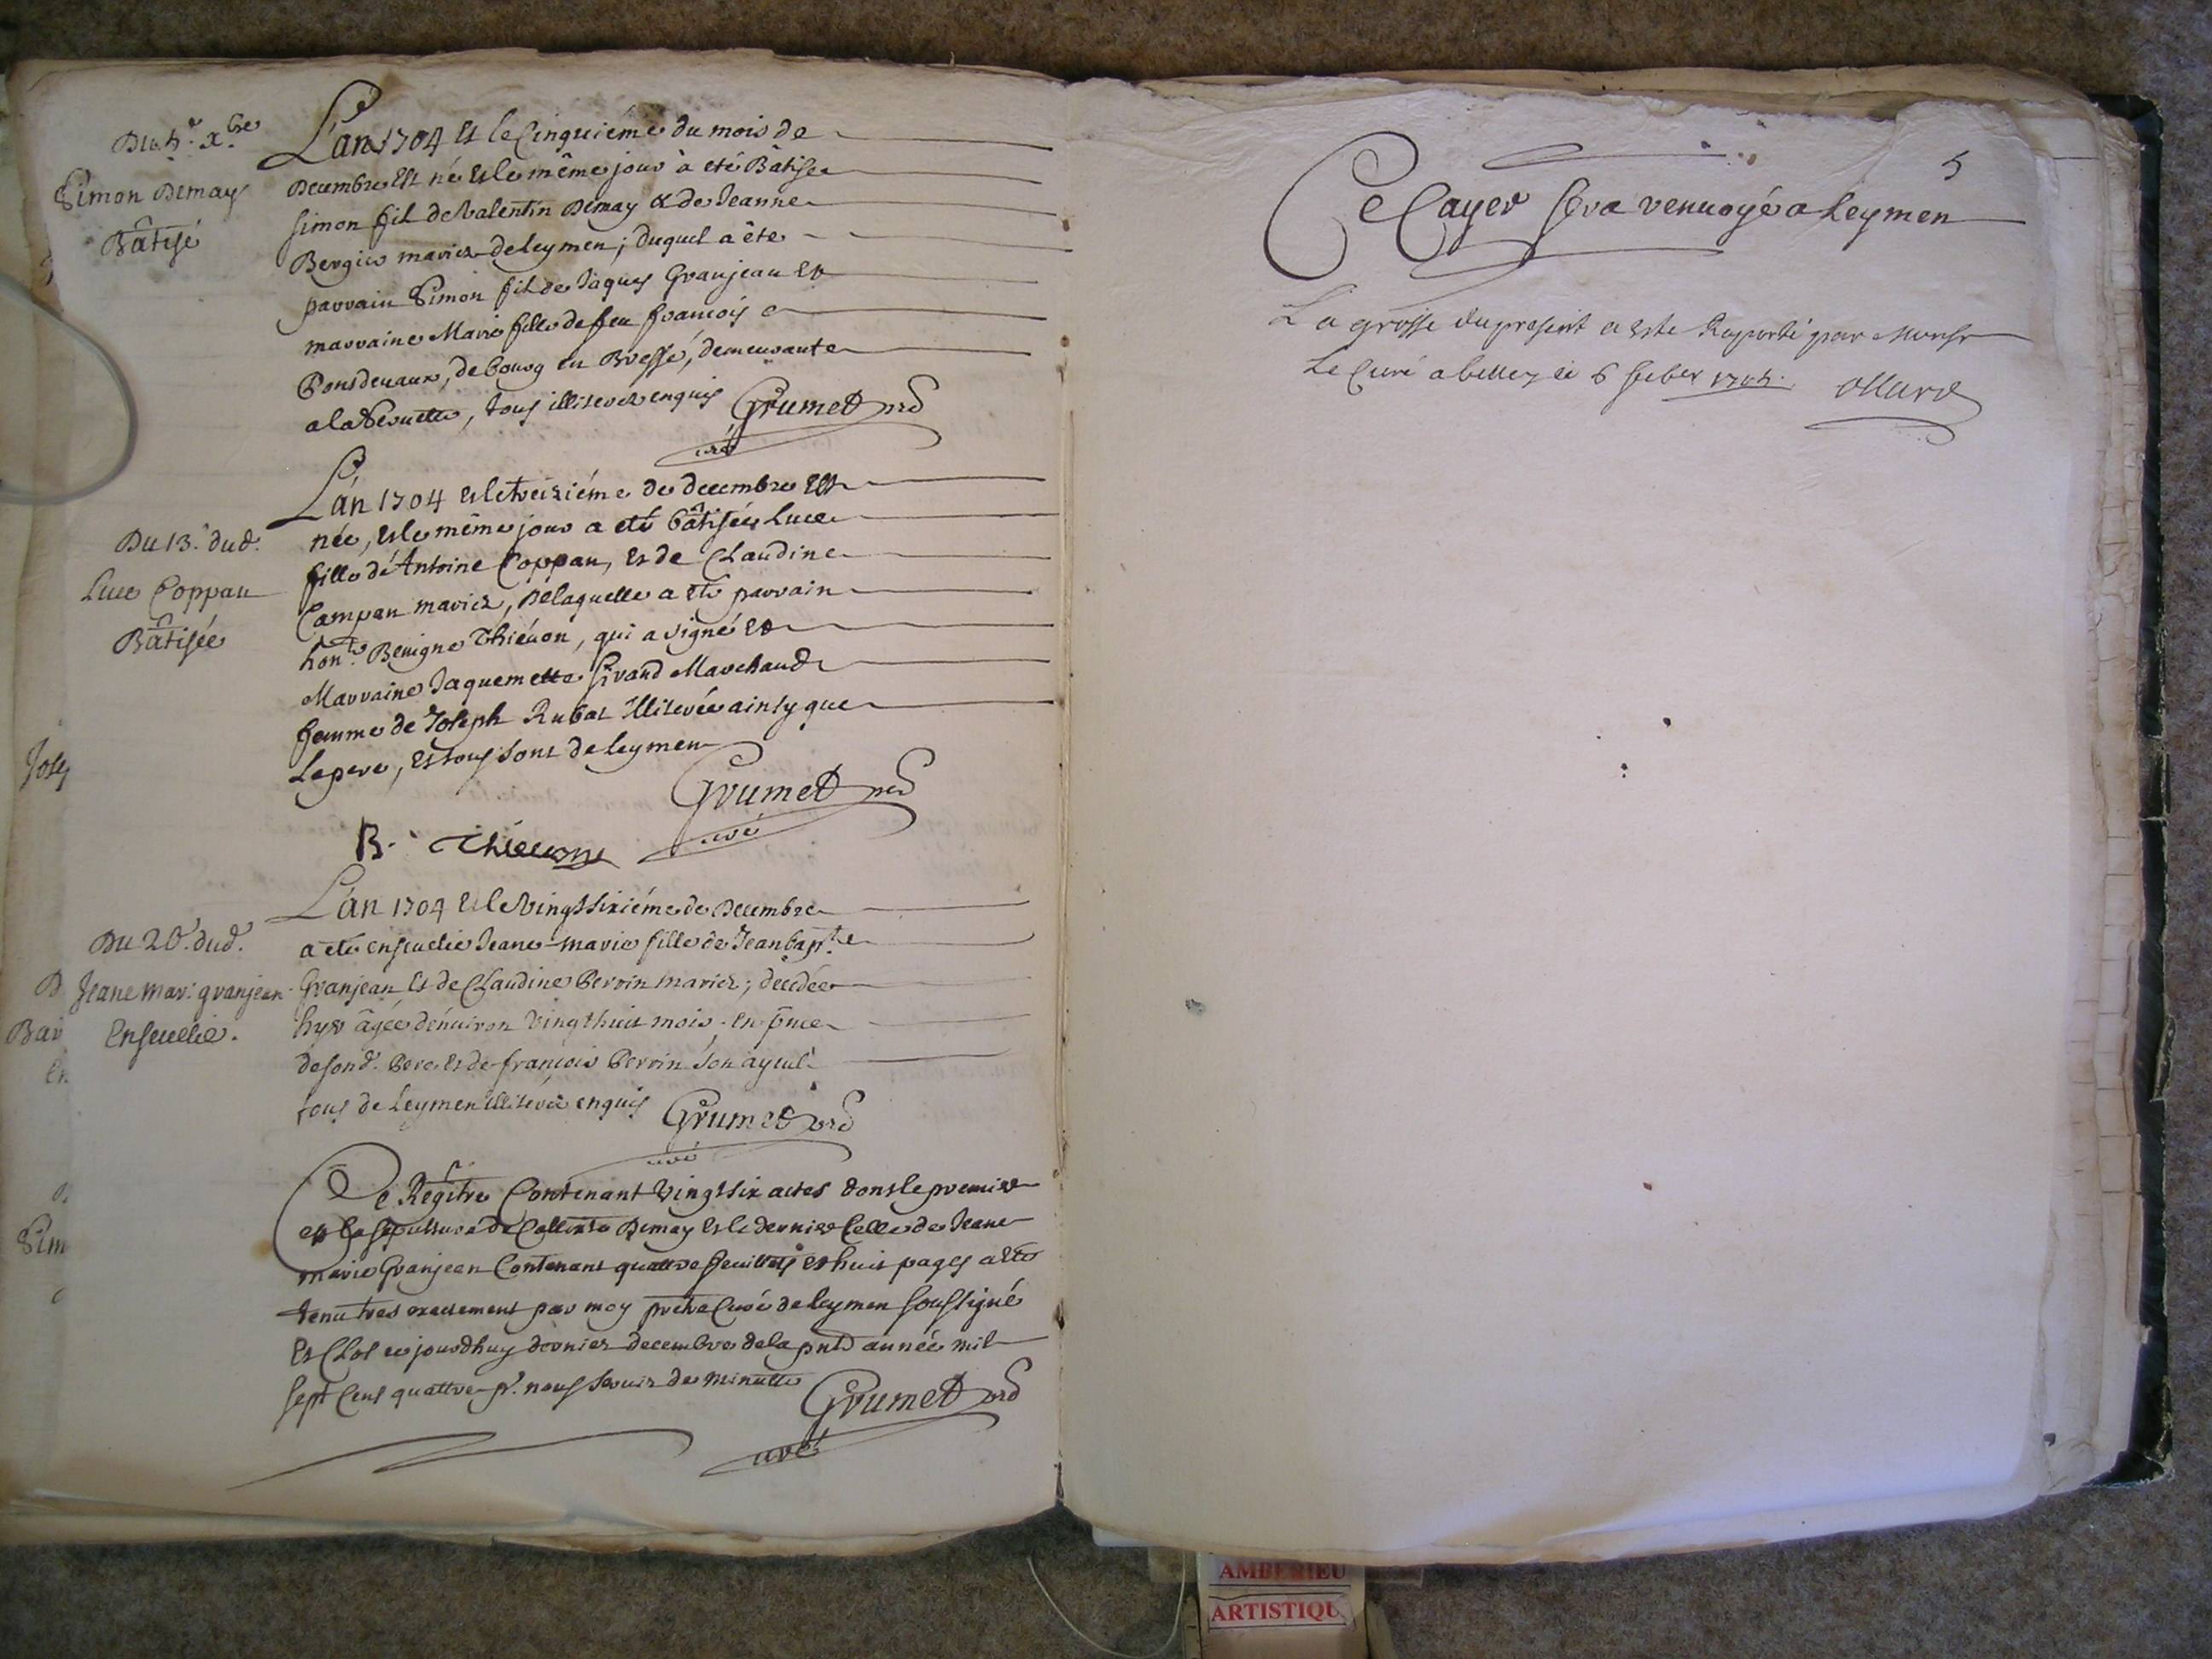 Du 5e. Xbre
Simon Demay
Bâtisé
L'an 1704 et le Cinquiéme du mois de
Decembre Est né et le même jour à eté Bâtisé
simon fil de Valentin Demay & de Jeanne
mariez de leymen; duquel a été
parrain Simon fil de Jaques Granjean et
marraine Marie fille de feu francois
Ponsdevaux, de bourg en Bresse, demeurante
tous illiterez enquis Grumet
curé
Du 13e. dud.
Luce Coppan
Bâtisée
L'an 1704 et le treiziéme de decembre Est
née, et le même jour a eté bâtisée Luce
fille de Antoine Coppan, et de Claudine
Campan mariez, De laquelle a eté parrain
hont. Benigne Thiévon, qui a signé et
Marraine Jaquemette Sirand Marchand
femme de Joseph Rubat Illiterée ainsy que
Le pere, et tous sont de leymen
Grumet
curé
B. Thievon
Du 26. dud.
Jeane mar: granjean
Ensevelie.
L'an 1704 et le Vingt sixiéme de Decembre
a eté ensevelie Jeane-marie fille de Jean bapte
Granjean et de Claudine Perrin mariez; decedée
hyer âgée d'environ Vingt huit mois, en pnce
de sond. Pere et de françois Perrin son ayeul
tous de Leymen illiterez enquis Grumet
curé
Ce Regitre Contenant Vingt six actes dont le premier
est la sepulture de Demay et le dernier Celle de Jeane
marie Granjean Contenant quattre feuillets et huit pages a eté
tenu tres exactement par moy prêtre Curé de leymen soussigné
et Clos ce jourdhuy dernier decembre de la pnte année mil
sept Cent quattre pr. nous servir de minutte Grumet
curé
5
Ce Cayer sera renvoyé a Leymen
La grosse du present a este Raporté par Monsr
Le Curé a belley le 6
Josep
Sim
AMBERIEU
ARTISTIQU